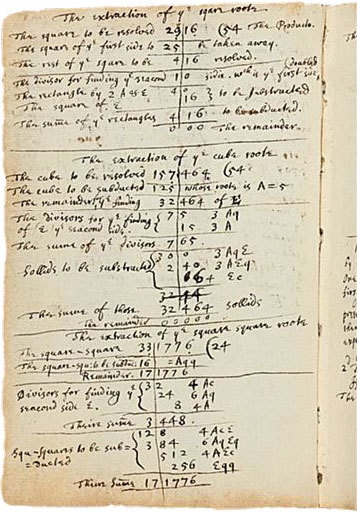 The extraction of yᵉ square roote
The square to be resolved 29 16 (54 The Product.
The square of yᵉ first side to 25 be taken away.
The rest of yᵉ square to be 4 16 resolved.
The divisor for finding yᵉ seacond 10 side. wᶜʰ is yᵉ first side doubled
The rectangle by 2A & E 4 0 to be substracted
The square of E 16
The sume of yᵉ rectangles 4 16 to be subducted.
0 00 The remainder.
The extraction of yᵉ cube roote
The cube to be resolved 157 464 (54
The cube to be subducted 125 whose roote is A = 5
The remainder for yᵉ finding 32 464 of E
The divisors for yᵉ finding 7 5 3 Aq
of E yᵉ seacond side 15 3 A
The sume of yᵉ divisors 7 65.
30 0 3 AqE
Sollids to be substracted 2 40 3 AEq
64 Ec
The sume of those 32 464 sollids
The remainder 00 000
The extraction of yᵉ square square roote
The square-square 33 1776 (24
The square-squ: to be subtr. 16 = Aqq
Remainder. 17 1776
Divisors for finding yᵉ 3 2 4 Ac
seacond side E. 24 6 Aq
8 4 A
Their sume 3 448.
12 8 4 AcE
Squ-squares to be sub= 3 84 6 AqEq
=ducted 512 4 AEc
256 Eqq
Their sume 17 1776